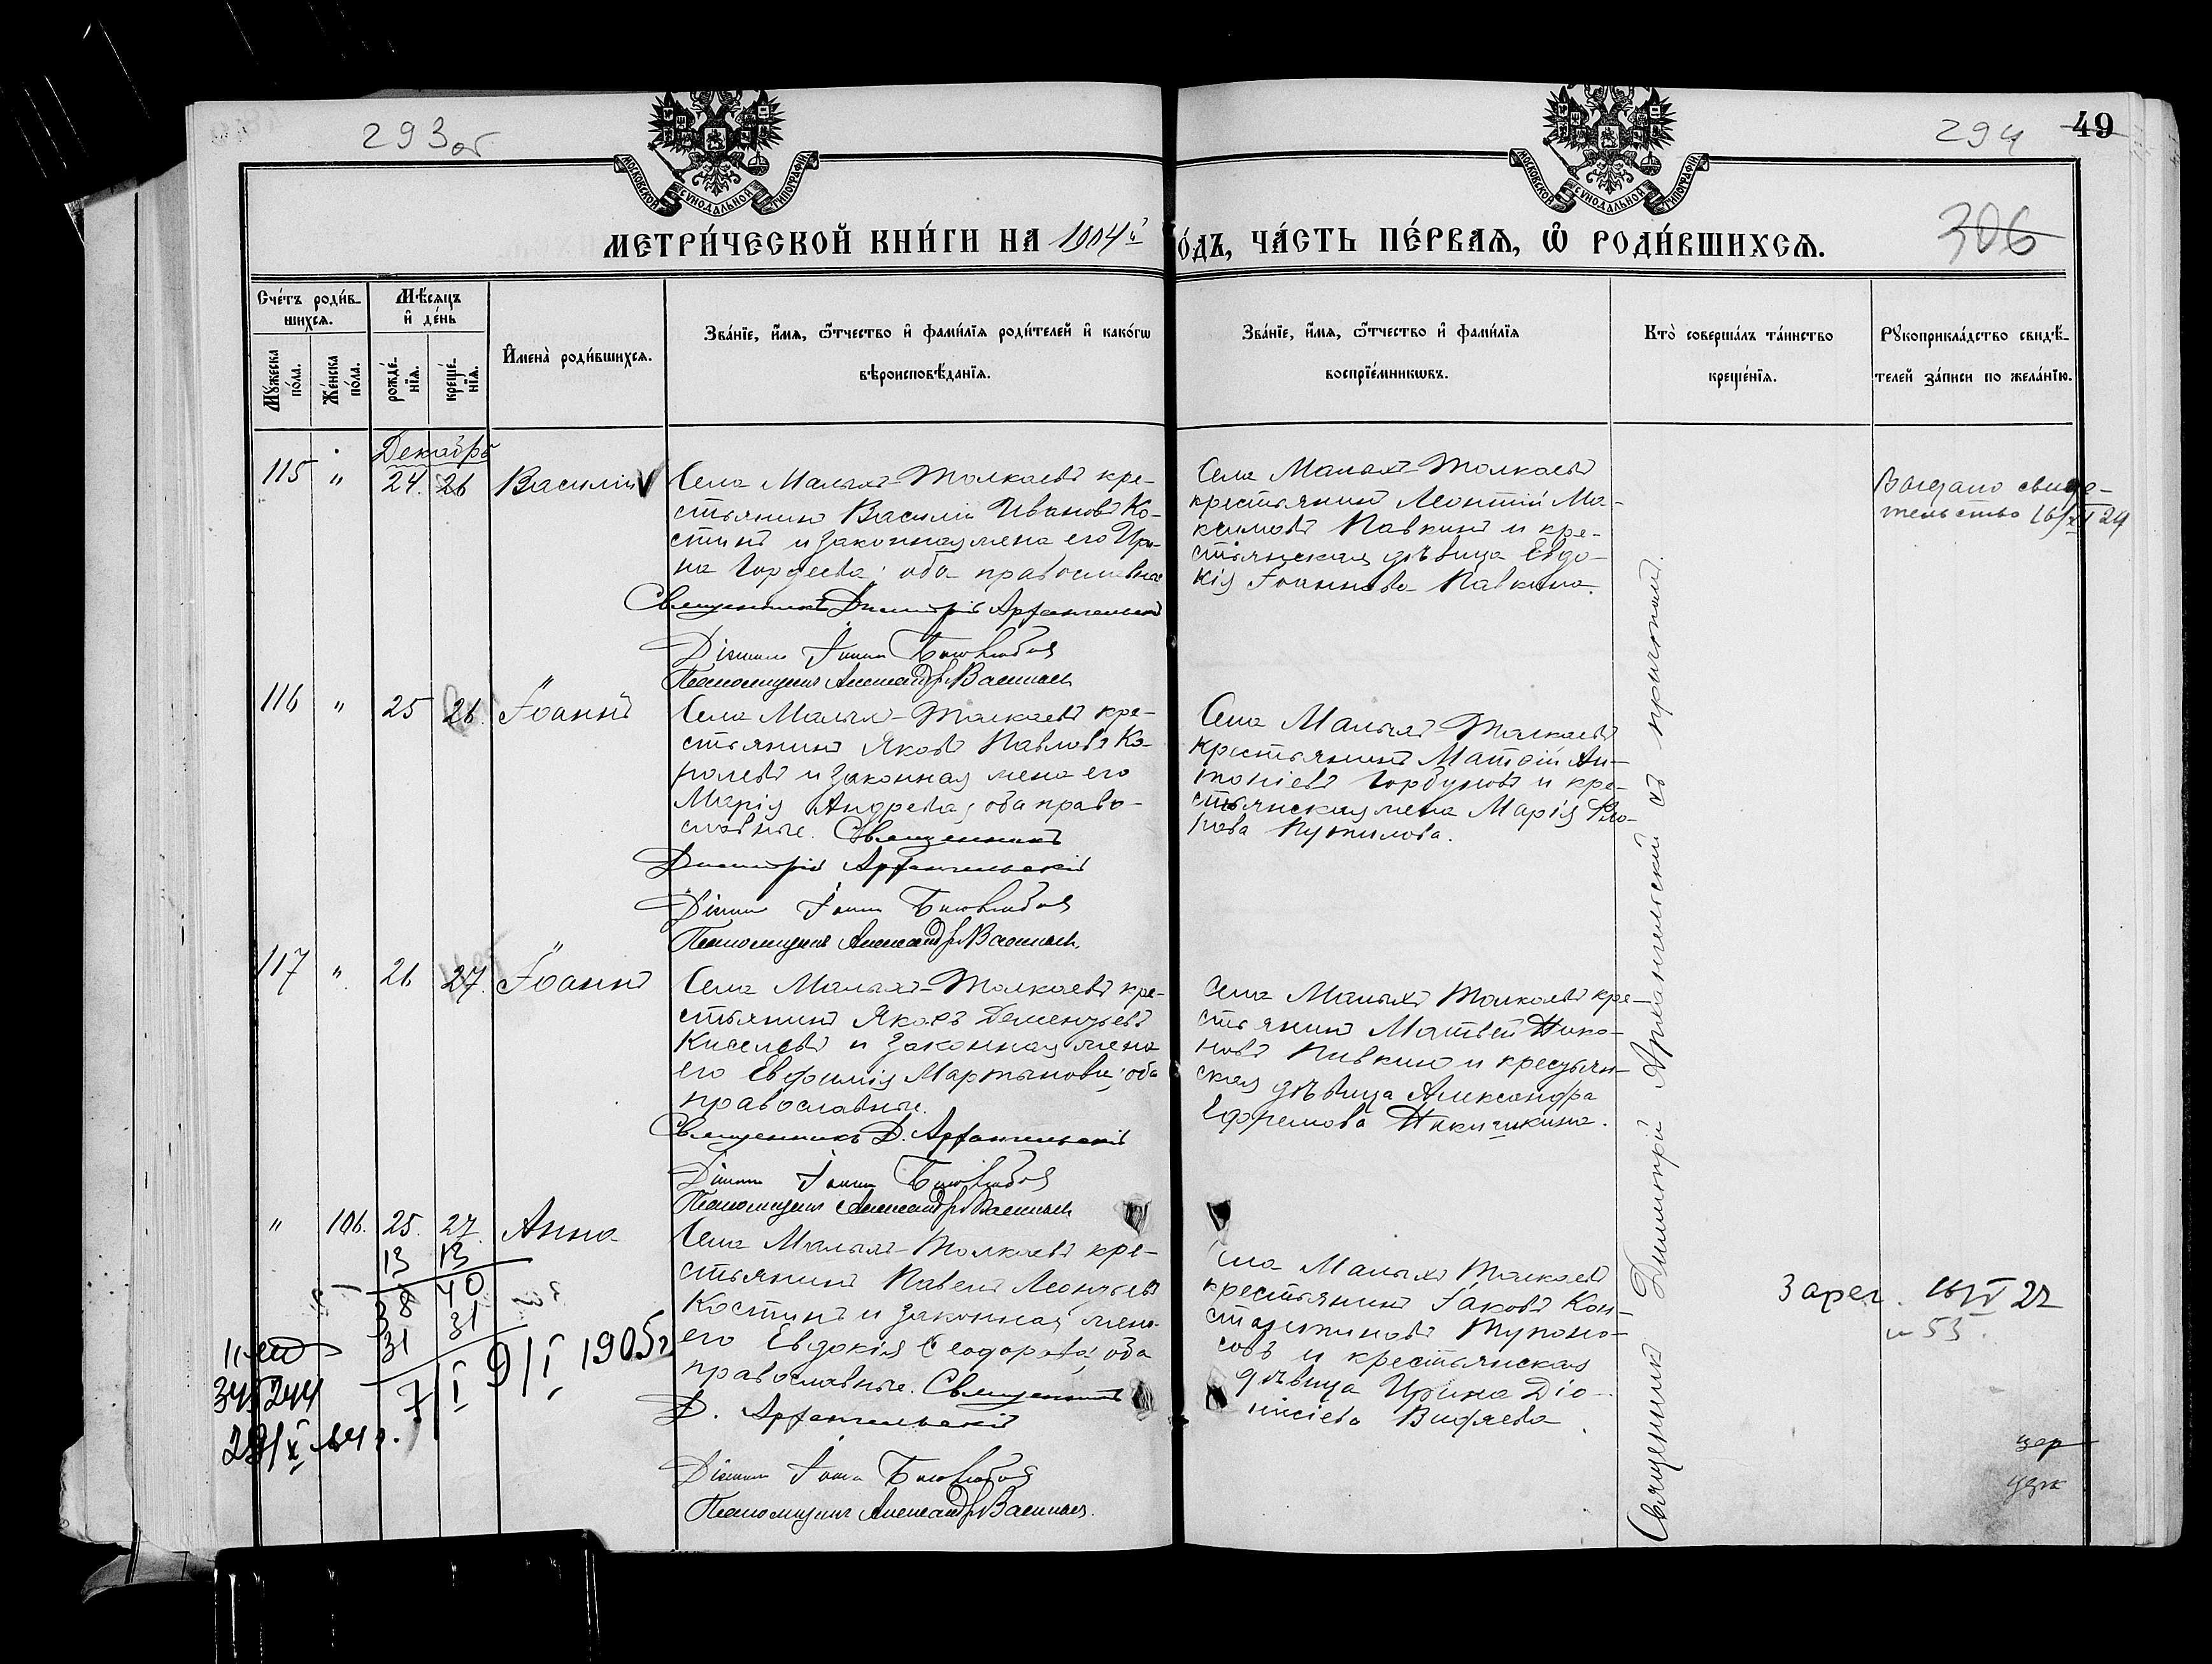 293 об
294
49
306
МОСКОВСКОЙ СѴНОДАЛЬНОЙ ТИПОГРАФІИ
МОСКОВСКОЙ СѴНОДАЛЬНОЙ ТИПОГРАФІИ
МЕТРИ́ЧЕСКОЙ КНИ́ГИ НА 1904й
О́ДЪ, ЧА́СТЬ ПЕ́РВАѦ, Ѡ҆ РОДИ́ВШИХСѦ.
Сче́тъ роди́в-
шихсѧ.
Мꙋ́жеска по́ла.
Же́нска по́ла.
Мѣ́сѧцъ
и҆ де́нь
рожде́нїѧ.
креще́нїѧ.
И҆мена̀ роди́вшихсѧ.
Зва́нїе, и҆́мѧ, ѻ҆́тчество и҆ фами́лїѧ роди́телей и҆ како́гѡ
вѣроисповѣ́данїѧ.
Зва́нїе, и҆́мѧ, ѻ҆́тчество и҆ фами́лїѧ
воспрїе́мникѡвъ.
Кто̀ соверша́лъ та́инство
креще́нїѧ.
Рꙋкоприкла́дство свидѣ́-
телей за́писи по жела́нїю.
Декабрь
115 " 24. 26 Василій V
Села Малыхъ-Толкаевъ кре-
стьянинъ Василій Ивановъ Ко-
стинъ и законная жена его Ири-
на Гордеева; оба православные
Священникъ Димитрій Архангельскій
Діаконъ Іоаннъ Боголюбовъ
Псаломщикъ Александръ Васильевъ
Села Малыхъ-Толкаевъ
крестьянинъ Леонтій Ма-
ксимовъ Павкинъ и кре-
стьянская дѣвица Евдо-
кія Іоаннова Павкина.
Выдано свиде-
тельство 16/XI 24
116 " 25 26. Іоаннъ
Села Малыхъ-Толкаевъ кре-
стьянинъ Яковъ Павловъ Ко-
ролевъ и законная жена его
Марія Андреева; оба право-
славные. Священникъ
Димитрій Архангельскій
Діаконъ Іоаннъ Боголюбовъ
Псаломщикъ Александръ Васильевъ
Села Малыхъ Толкаевъ
крестьянинъ Матѳій Ан-
тоніевъ Горбуновъ и кре-
стьянская жена Марія Фло-
рова Путилова.
117 " 26 27. Іоаннъ
Села Малыхъ-Толкаевъ кре-
стьянинъ Яковъ Дементьевъ
Киселевъ и законная жена
его Евфимія Мартынова; оба
православные.
Священникъ Д. Архангельскій
Діаконъ Іоаннъ Боголюбовъ
Псаломщикъ Александръ Васильевъ
Села Малыхъ Толкаевъ кре-
стьянинъ Матвей Нико-
новъ Пивкинъ и крестьян-
ская дѣвица Александра
Ефремова Никишкина.
" 106. 25. 27. Анна
Села Малыхъ-Толкаевъ кре-
стьянинъ Павелъ Леонтьевъ
Костинъ и законная жена
его Евдокія Ѳеодорова; оба
православные. Священникъ
Д. Архангельскій
Діаконъ Іоаннъ Боголюбовъ
Псаломщикъ Александръ Васильевъ.
Села Малыхъ Толкаевъ
крестьянинъ Іаковъ Кон-
стантиновъ Тупоно-
совъ и крестьянская
дѣвица Ирина Діо-
нисіева Видяева
13 13
38 40
31 31
7/I 9/I 1905г
Священникъ Димитрій Архангельскій съ причтомъ.
Зарег.
53.